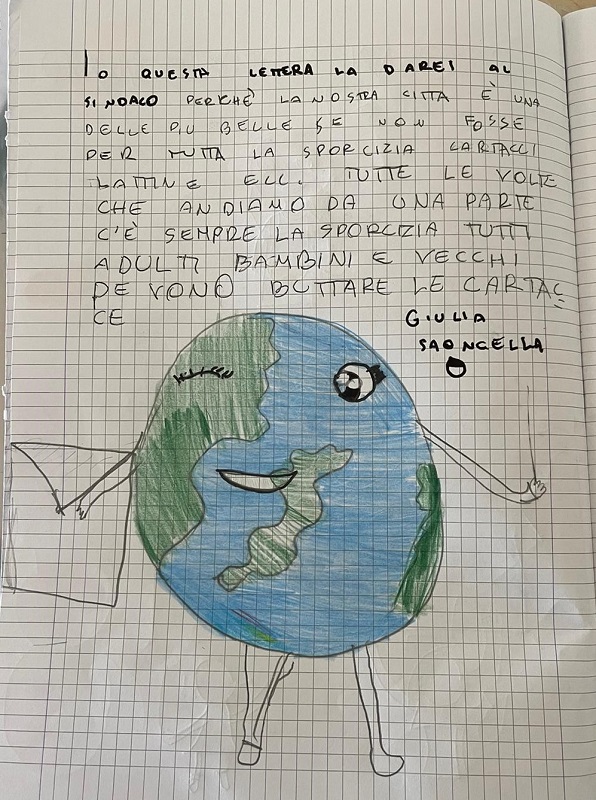 IO QUESTA LETTERA LA DAREI AL
SINDACO PERCHÈ LA NOSTRA CITTA È UNA
DELLE PIU BELLE SE NON FOSSE
PER TUTTA LA SPORCIZIA CARTACCI
LATTINE ECC. TUTTE LE VOLTE
CHE ANDIAMO DA UNA PARTE
C'È SEMPRE LA SPORCIZIA TUTTI
ADULTI BAMBINI E VECCHI
DEVONO BUTTARE LE CARTAC=
CE
GIULIA
SAONCELLA